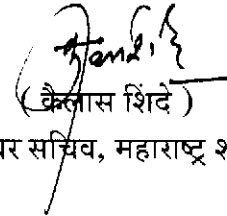 ( कैलास शिंदे )
वर सचिव, महाराष्ट्र श